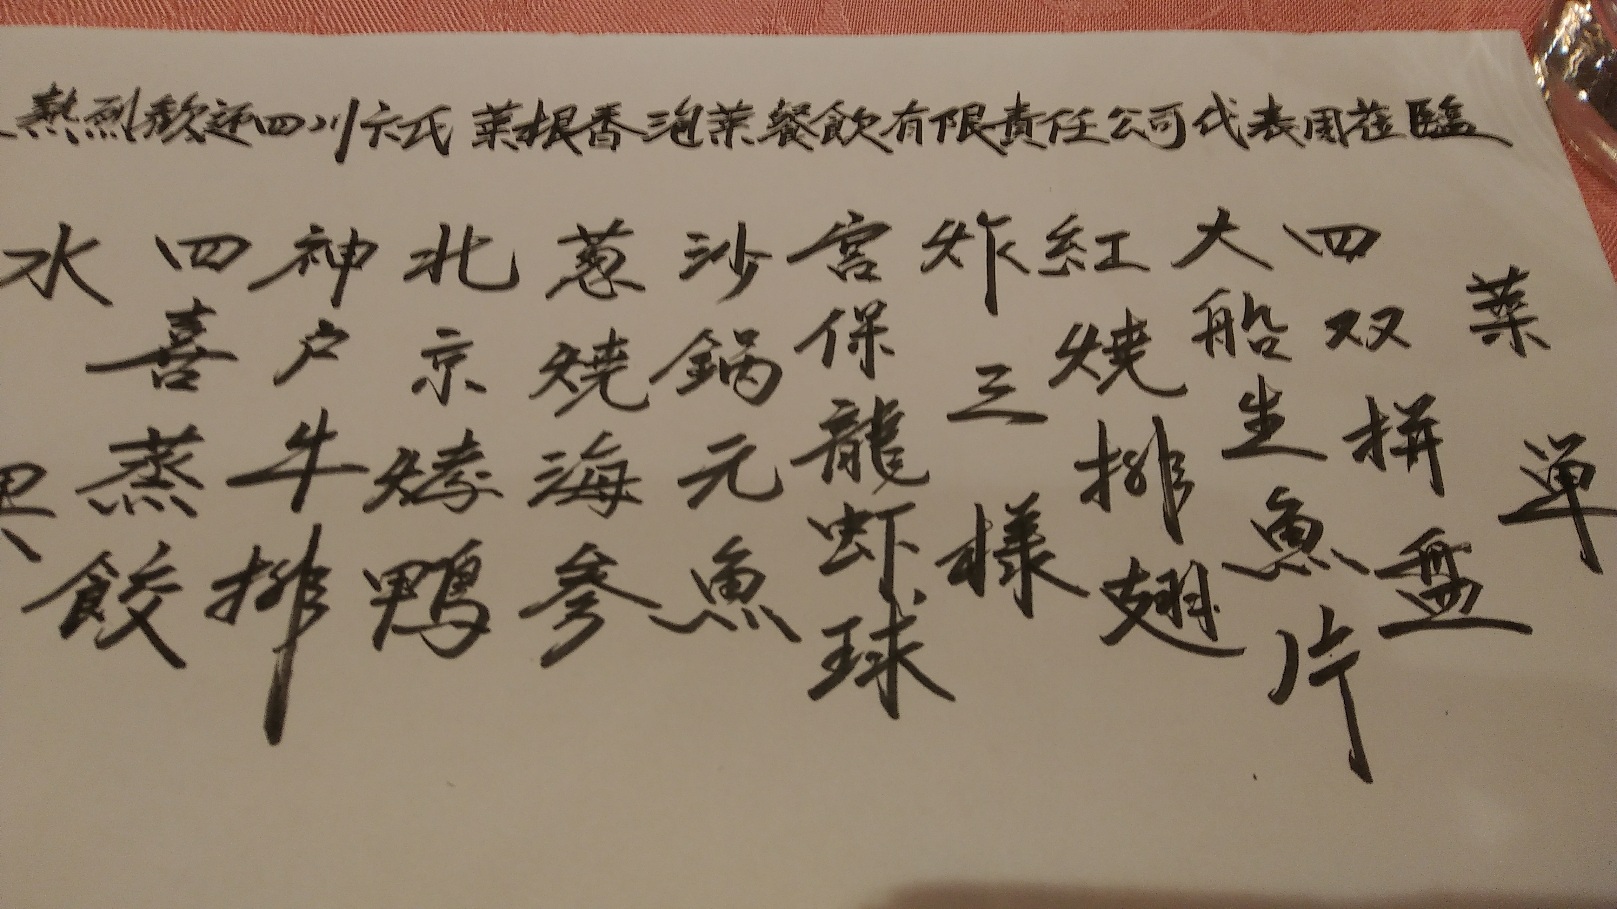 熱烈歡迎四川六氏菜根香泡菜餐飲有限責任公司代表团蒞臨
菜单
四双拼盤
大船生魚片
紅燒排翅
炸三樣
宮保龍虾球
沙鍋元魚
葱燒海參
北京烤鴨
神户牛排
四喜蒸餃
水果